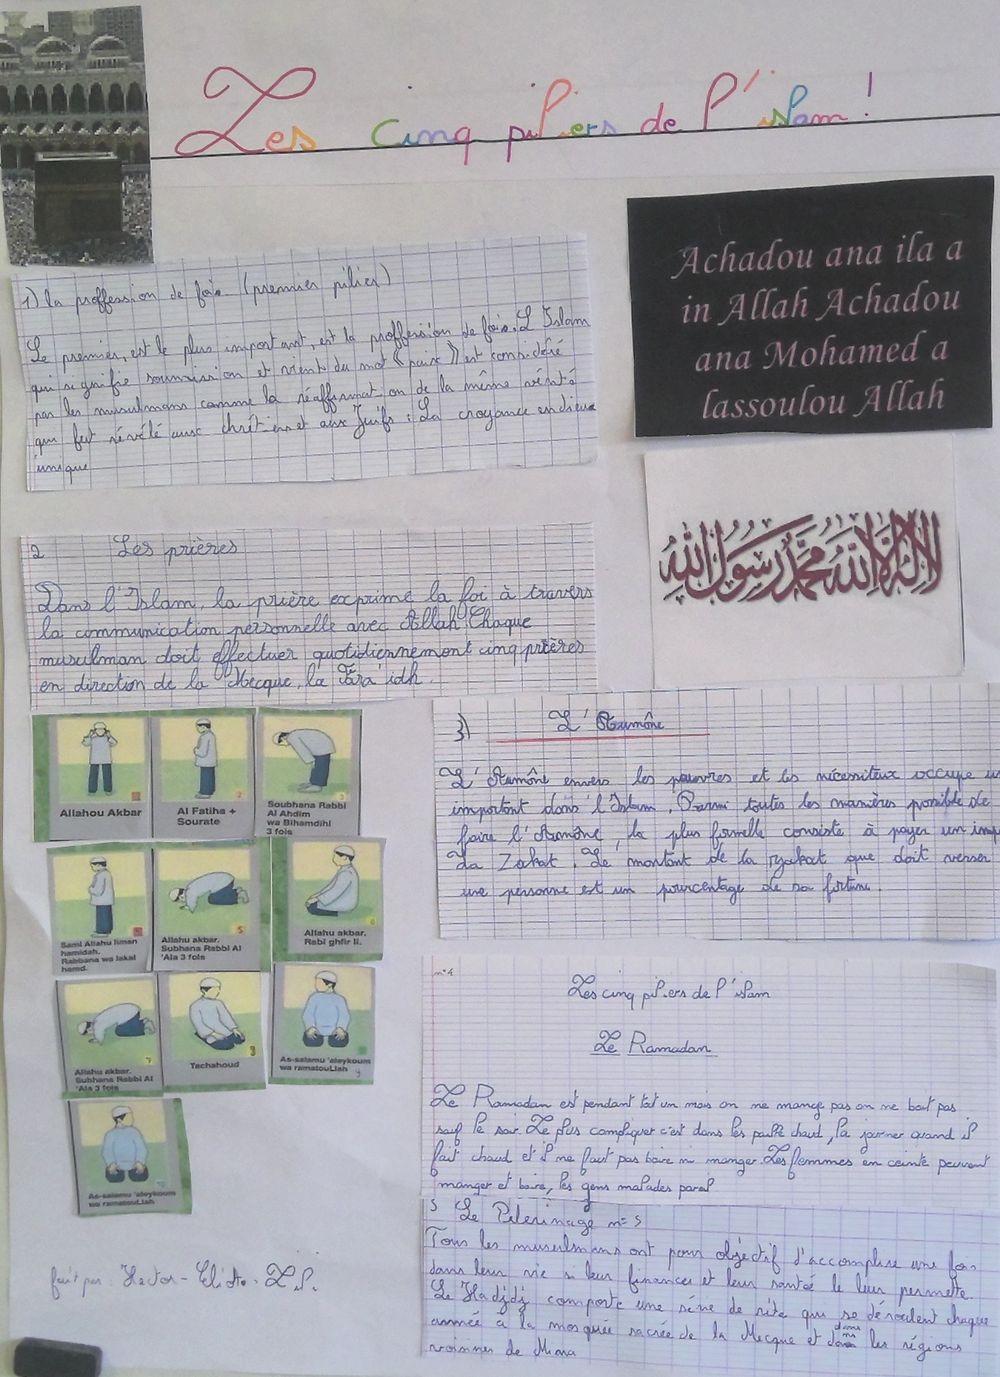 Les cinq piliers de l'islam !
1) la proffession de foie (premier pilier)
Le premier, est le plus important, est la proffession de foie. L'Islam
qui signifie soumission et vient du mot « paix » est considéré
par les musulmans comme la réaffirmation de la même vérité
qui fut révélé aux chrétiens et aux Juifs : La croyance en dieu
unique
Achadou ana ila a
in Allah Achadou
ana Mohamed a
lassoulou Allah
لا إله إلا الله محمد رسول الله
2 Les prières
Dans l'Islam, la prière exprime la foi à travers
la communication personnelle avec Allah. Chaque
musulman doit effectuer quotidiennement cinq prières
en direction de la Mecque, la Fara'idh.
Allahou Akbar
Al Fatiha +
Sourate
Soubhana Rabbi
Al Ahdim
wa Bihamdihi
3 fois
Sami Allahu liman
hamidah.
Rabbana wa lakal
hamd.
Allahu akbar.
Subhana Rabbi Al
'Ala 3 fois
Allahu akbar.
Rabi ghfir li.
Allahu akbar.
Subhana Rabbi Al
'Ala 3 fois
Tachahoud
As-salamu 'aleykoum
wa ramatouLlah
As-salamu 'aleykoum
wa ramatouLlah
3) L'Aumône
L'Aumône envers les pauvres et les nécessiteux occupe
important dans l'Islam. Parmi toutes les manières possible de
faire l'Aumône, la plus formelle consiste à payer un imp
La Zakat. Le montant de la zakat que doit verser
une personne est un pourcentage de sa fortune
n°4
Les cinq piliers de l'islam
Le Ramadan
Le Ramadan est pendant tout un mois on ne mange pas on ne boit pas
sauf le soir. Le plus compliquer c'est dans les chaud, la journer quand il
fait chaud et il ne faut pas boire ni manger. Les femmes en ceinte peuvent
manger et boire, les gens malades parel
5 Le Pelerinage n° 5
Tous les musulmans ont pour objectif d'accomplire une fois
dans leur vie si leur finances et leur santé le leur permette.
Le Hadjdj comporte une série de rite qui se déroulent chaque
année à la mosquée sacrée de la Mecque et dans les régions
voisines de Mina
fait par : Hector -